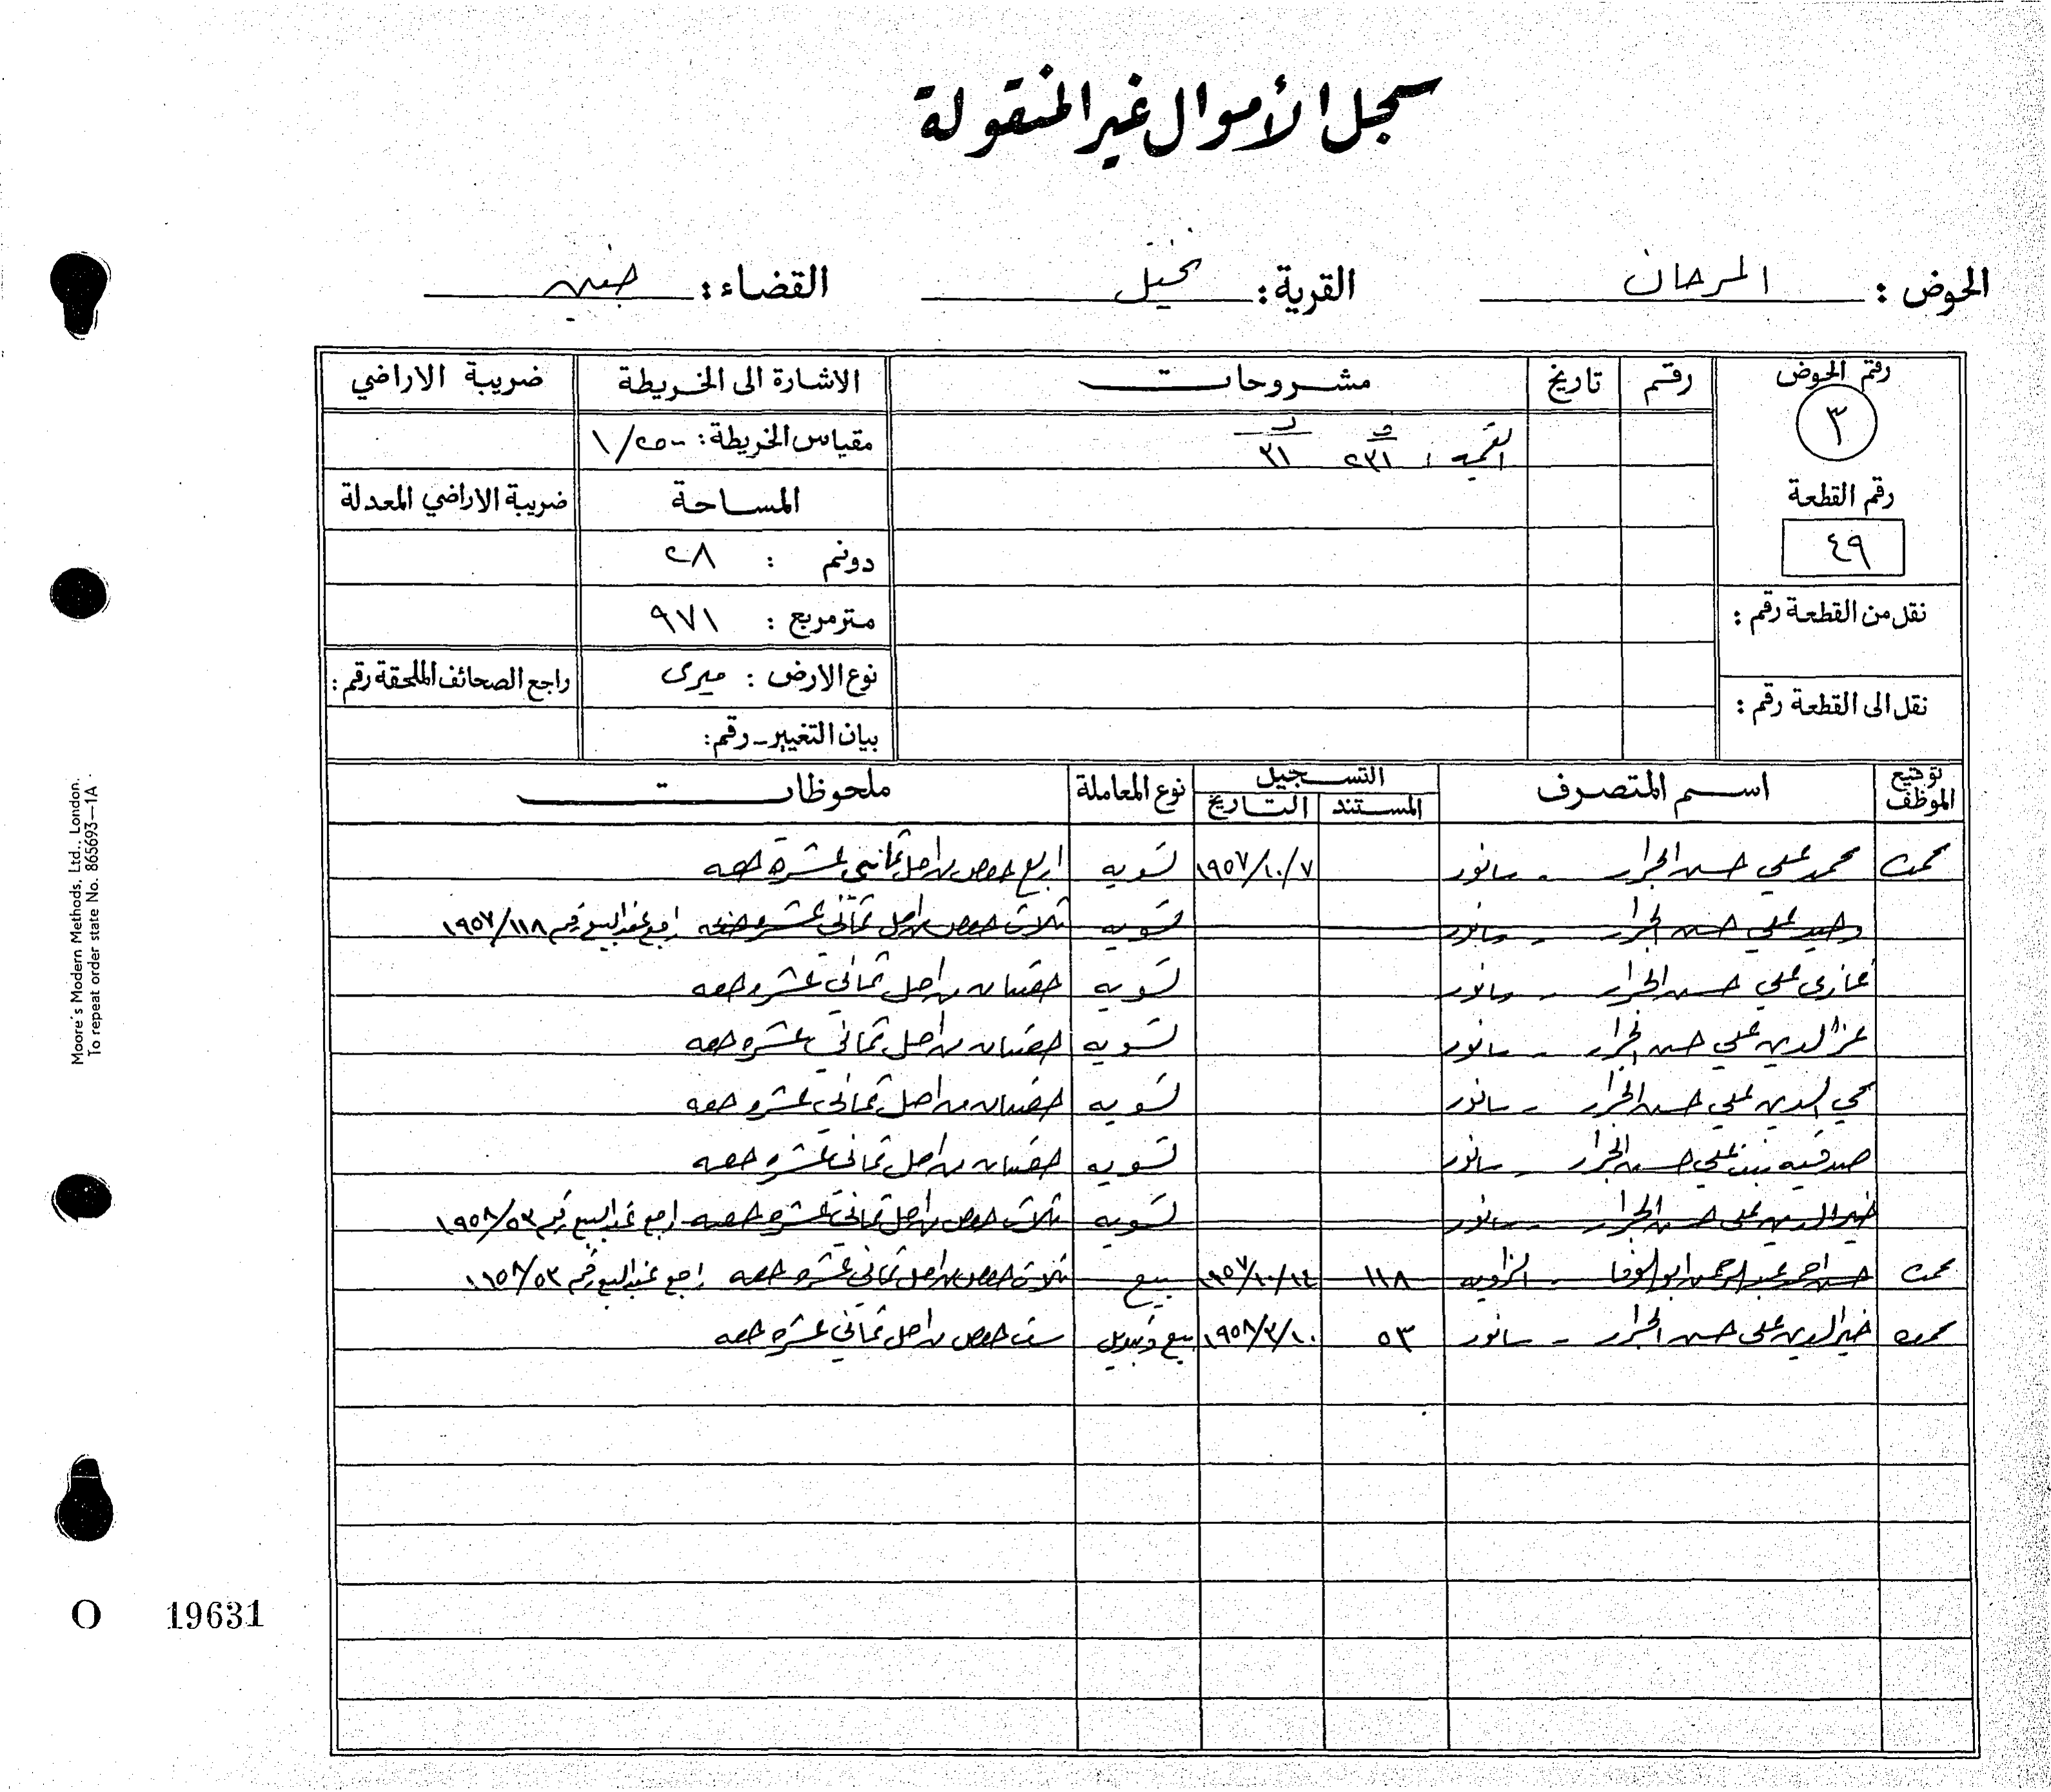 سجل الأموال غير المنقولة
الحوض : المرحان القرية : نخيل القضاء : جنين
رقم الحوض رقم تاريخ مشروحات الاشارة الى الخريطة ضريبة الاراضي
٣ القيمة : ٢٣١ ٣١ مقياس الخريطة : ١/٢٥٠٠
رقم القطعة المساحة ضريبة الاراضي المعدلة
٤٩ دونم : ٢٨
نقل من القطعة رقم : متر مربع : ٩٧١
نوع الارض : ميرى راجع الصحائف الملحقة رقم :
نقل الى القطعة رقم :
بيان التغيير - رقم :
توقيع الموظف اسم المتصرف التسجيل نوع المعاملة ملحوظات
المستند التاريخ
محمد علي حسن الجرار - سانور ١٩٥٧/١٠/٧ تسويه اربع حصص من اصل ثماني عشرة حصه
وحيد علي حسن الجرار - سانور تسويه ثلاث حصص من اصل ثماني عشره حصه راجع عقد البيع رقم ١٩٥٧/١١٨
غازى علي حسن الجرار - سانور تسويه حصتان من اصل ثماني عشره حصه
عز الدين علي حسن الجرار - سانور تسويه حصتان من اصل ثماني عشره حصه
محي الدين علي حسن الجرار - سانور تسويه حصتان من اصل ثماني عشره حصه
صدقيه بنت علي حسن الجرار - سانور تسويه حصتان من اصل ثماني عشره حصه
خير الدين علي حسن الجرار - سانور تسويه ثلاث حصص من اصل ثماني عشره حصه راجع عقد البيع رقم ١٩٥٨/٥٣
حسن احمد عبد الرحمن ابو الوفا - الزاويه ١١٨ ١٩٥٧/١٠/١٤ بيع ثلاث حصص من اصل ثماني عشره حصه راجع عقد البيع رقم ١٩٥٨/٥٣
خير الدين علي حسن الجرار - سانور ٥٣ ١٩٥٨/٣/١٠ بيع وتبديل ست حصص من اصل ثماني عشره حصه
Moore's Modern Methods, Ltd., London.
To repeat order state No. 865693—1A.
O 19631